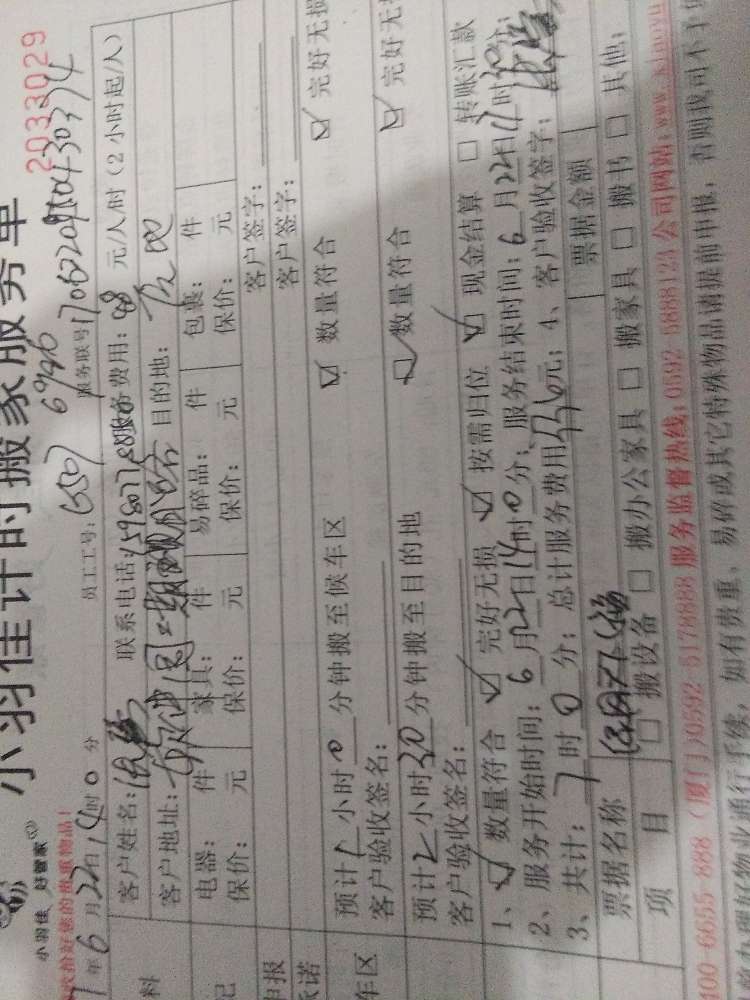 小羽佳计时搬家服务单
小羽佳 好管家
2033029
收拾好您的贵重物品!
员工工号: 6507 6946
服务联号 170622091043
年 6 月 22 日 14 时 0 分
客户姓名: 联系电话: 服务费用: 88 元/人/时 (2 小时起/人)
客户地址: 目的地:
电器: 件 家具: 件 易碎品: 件 包裹: 件
保价: 元 保价: 元 保价: 元 保价: 元
客户签字:
客户签字:
预计 1 小时 0 分钟搬至候车区 ☑ 数量符合 ☑ 完好无损
客户验收签名:
预计 2 小时 30 分钟搬至目的地 ☑ 数量符合 ☑ 完好无
客户验收签名:
1、☑ 数量符合 ☑ 完好无损 ☑ 按需归位 ☑ 现金结算 □ 转账汇款
2、服务开始时间: 6 月 22 日 14 时 0 分; 服务结束时间: 6 月 22 日 时 分;
3、共计: 7 时 0 分; 总计服务费用 元; 4、客户验收签字:
票据名称 票据金额
项 目 □ 搬设备 □ 搬办公家具 □ 搬家具 □ 搬书 □ 其他:
400-6655-888 (厦门)0592-5178888 服务监督热线: 0592-5888123 公司网站:www.xiaoyu
办理好物业通行手续, 如有贵重、易碎或其它特殊物品请提前申报, 否则我司不予